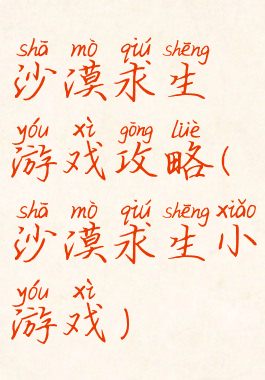 shā mò qiú shēng
沙漠求生
yóu xì gōng lüè
游戏攻略(
shā mò qiú shēng xiǎo
沙漠求生小
yóu xì
游戏)